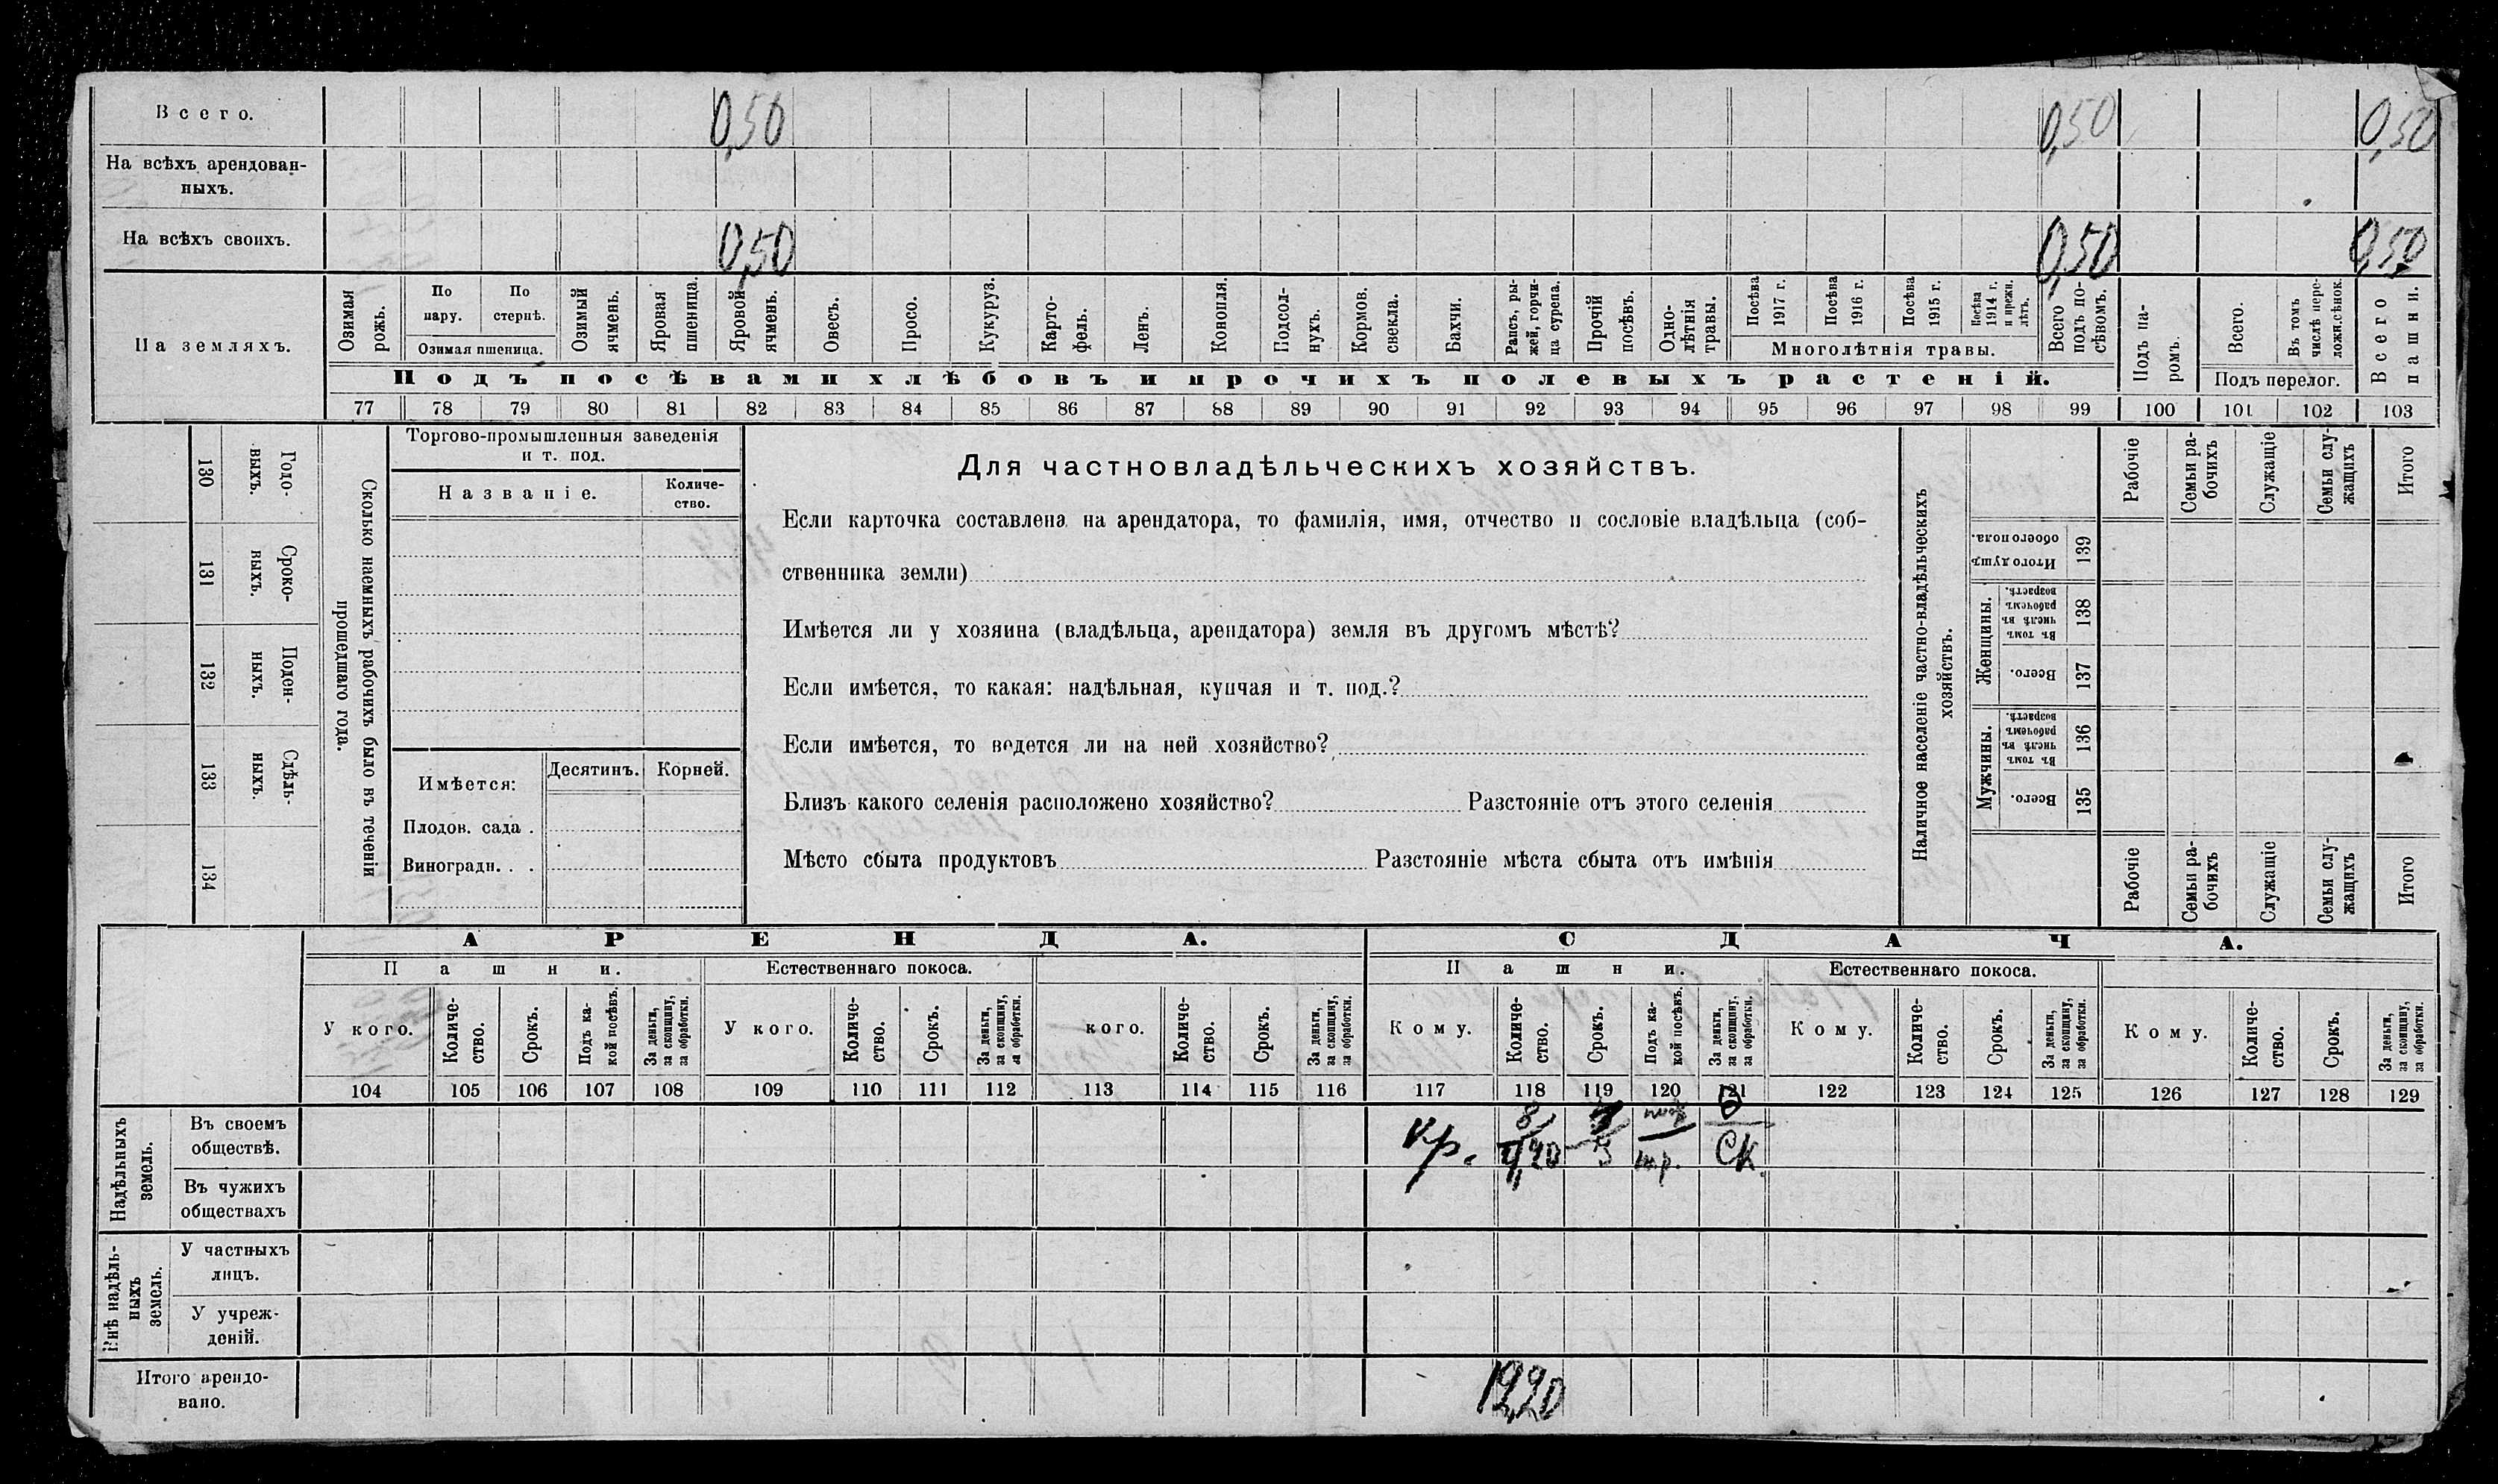 Всего. 0,50 0,50 0,50
На всѣхъ арендован-
ныхъ.
На всѣхъ своихъ. 0,50 0,50 0,50
На земляхъ.
Озимая рожь.
По пару.
По стернѣ.
Озимая пшеница.
Озимый ячмень.
Яровая пшеница.
Яровой ячмень.
Овесъ.
Просо.
Кукуруз.
Карто-
фель.
Ленъ.
Конопля.
Подсол-
нухъ.
Кормов.
свекла.
Бахчи.
Рапсъ, ры-
жей, горчи-
ца сурепа.
Прочій
посѣвъ.
Одно-
лѣтнія
травы.
Посѣва
1917 г.
Посѣва
1916 г.
Посѣва
1915 г.
Посѣва
1914 г.
и прежн.
лѣтъ.
Многолѣтнія травы.
Всего
подъ по-
сѣвомъ.
Подъ па-
ромъ.
Всего.
Въ томъ
числѣ пере-
ложн.сѣнок.
Подъ перелог.
Всего
пашни.
Подъ посѣвами хлѣбовъ и прочихъ полевыхъ растеній.
77 78 79 80 81 82 83 84 85 86 87 88 89 90 91 92 93 94 95 96 97 98 99 100 101 102 103
130
Годо-
выхъ.
131
Сроко-
выхъ.
132
Поден-
ныхъ.
133
Сдѣль-
ныхъ.
134
Сколько наемныхъ рабочихъ было въ теченіи
прошедшаго года.
Торгово-промышленныя заведенія
и т. под.
Названіе.
Количе-
ство.
Имѣется:
Десятинъ.
Корней.
Плодов. сада .
Виноградн. . .
Для частновладѣльческихъ хозяйствъ.
Если карточка составлена на арендатора, то фамилія, имя, отчество и сословіе владѣльца (соб-
ственника земли)
Имѣется ли у хозяина (владѣльца, арендатора) земля въ другомъ мѣстѣ?
Если имѣется, то какая: надѣльная, купчая и т. под.?
Если имѣется, то ведется ли на ней хозяйство?
Близъ какого селенія расположено хозяйство? Разстояніе отъ этого селенія
Мѣсто сбыта продуктовъ Разстояніе мѣста сбыта отъ имѣнія
Наличное населеніе частно-владѣльческихъ
хозяйствъ.
Рабочіе
Семьи ра-
бочихъ
Служащіе
Семьи слу-
жащихъ
Итого
Итого душъ
обоего пола.
139
Женщины.
Въ томъ
числѣ въ
рабочемъ
возрастѣ.
138
Всего.
137
Мужчины.
Въ томъ
числѣ въ
рабочемъ
возрастѣ.
136
Всего.
135
Рабочіе
Семьи ра-
бочихъ
Служащіе
Семьи слу-
жащихъ
Итого
АРЕНДА. СДАЧА.
Пашни. Естественнаго покоса. Пашни. Естественнаго покоса.
У кого.
Количе-
ство.
Срокъ.
Подъ ка-
кой посѣвъ.
За деньги,
за скопщину,
за обработки.
У кого.
Количе-
ство.
Срокъ.
За деньги,
за скопщину,
за обработки.
кого.
Количе-
ство.
Срокъ.
За деньги,
за скопщину,
за обработки.
Кому.
Количе-
ство.
Срокъ.
Подъ ка-
кой посѣвъ.
За деньги,
за скопщину,
за обработки.
Кому.
Количе-
ство.
Срокъ.
За деньги,
за скопщину,
за обработки.
Кому.
Количе-
ство.
Срокъ.
За деньги,
за скопщину,
за обработки.
104 105 106 107 108 109 110 111 112 113 114 115 116 117 118 119 120 121 122 123 124 125 126 127 128 129
Надѣльныхъ
земель.
Въ своемъ
обществѣ.
кр. 8 3 ск.
Въ чужихъ
обществахъ
Внѣ надѣль-
ныхъ
земель.
У частныхъ
лицъ.
У учреж-
деній.
Итого арендо-
вано.
12,20